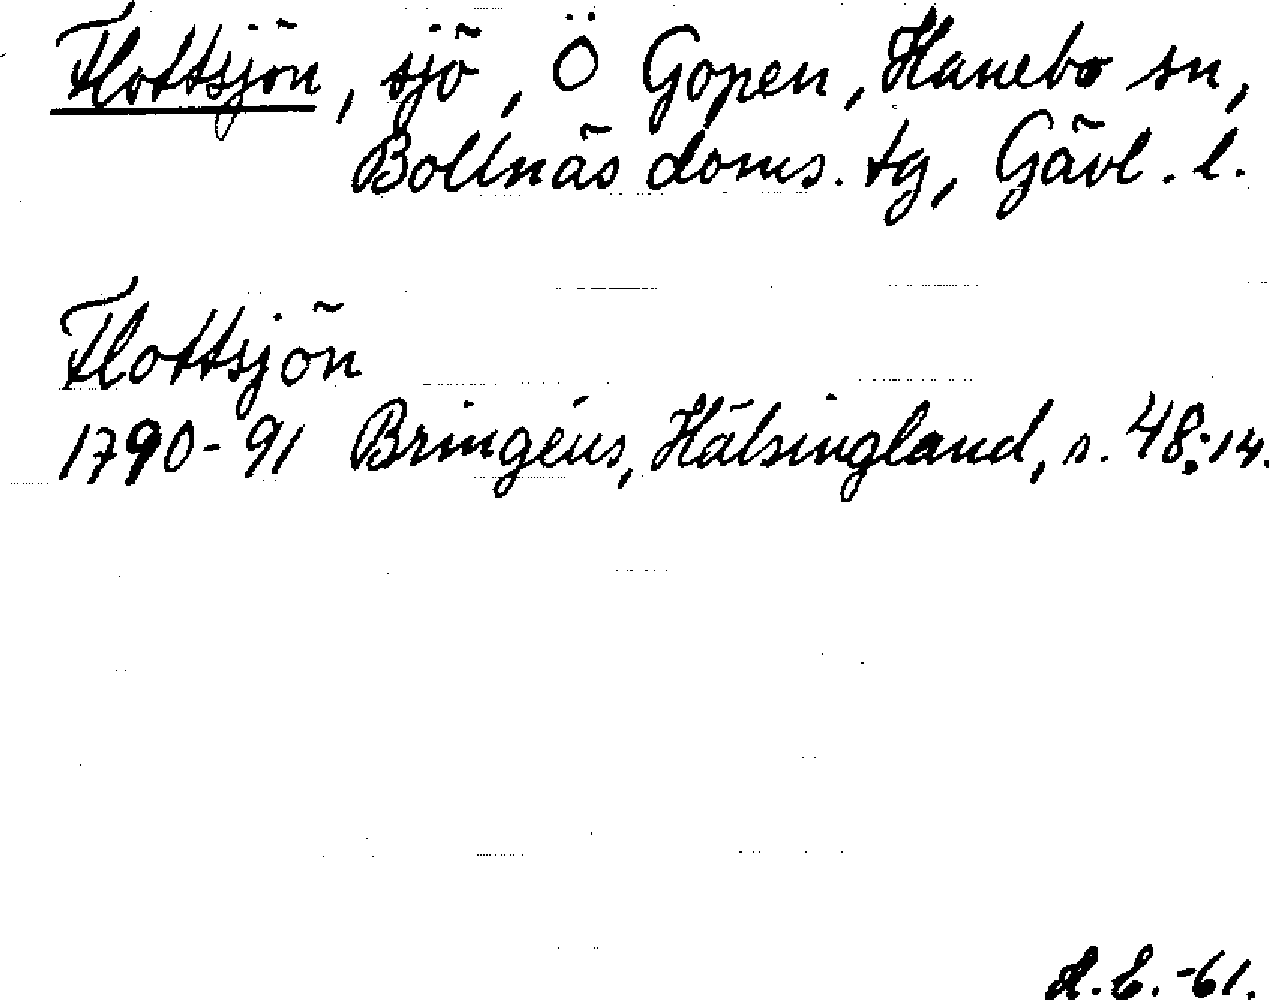 Flottsjön, sjö, Ö Gopen, Hanebo sn,
Bollnäs doms. tg, Gävl. l.
Flottsjön
1790-91 Bringéus, Hälsingland, s. 48:14.
A.E.-61.